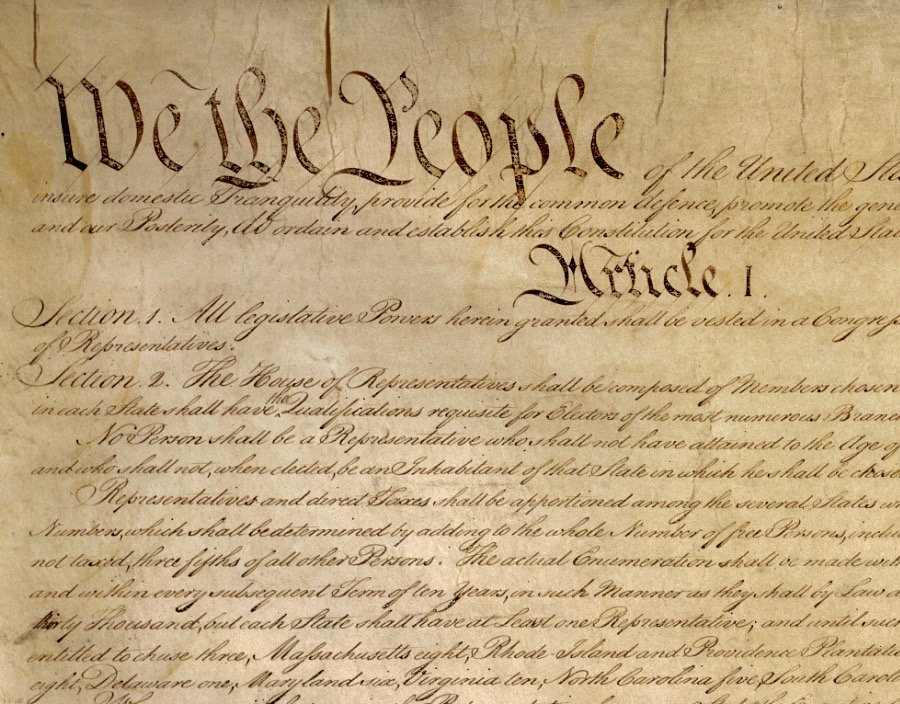 We the People of the United Sta
insure domestic Tranquility, provide for the common defence, promote the gene
and our Posterity, do ordain and establish this Constitution for the United Stat
Article. I.
Section. 1. All legislative Powers herein granted shall be vested in a Congress
of Representatives.
Section. 2. The House of Representatives shall be composed of Members chosen
in each State shall have the Qualifications requisite for Electors of the most numerous Branch
No Person shall be a Representative who shall not have attained to the Age of
and who shall not, when elected, be an Inhabitant of that State in which he shall be chosen
Representatives and direct Taxes shall be apportioned among the several States w
Numbers, which shall be determined by adding to the whole Number of free Persons, inclu
not taxed, three fifths of all other Persons. The actual Enumeration shall be made with
and within every subsequent Term of ten Years, in such Manner as they shall by Law d
thirty Thousand, but each State shall have at Least one Representative; and until such
entitled to chuse three, Massachusetts eight, Rhode Island and Providence Plantation
eight, Delaware one, Maryland six, Virginia ten, North Carolina five, South Caroli